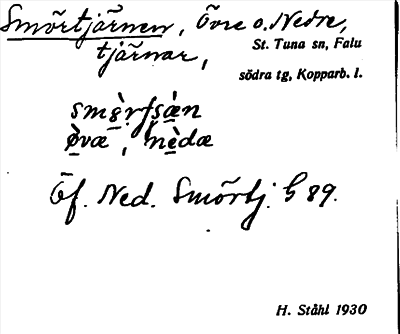 Smörtjärnen, Övre o. Nedre,
tjärnar,
St. Tuna sn, Falu
södra tg, Kopparb. l.
øvæ, nedæ
Öf. Ned. Smörtj. G 89.
H. Ståhl 1930